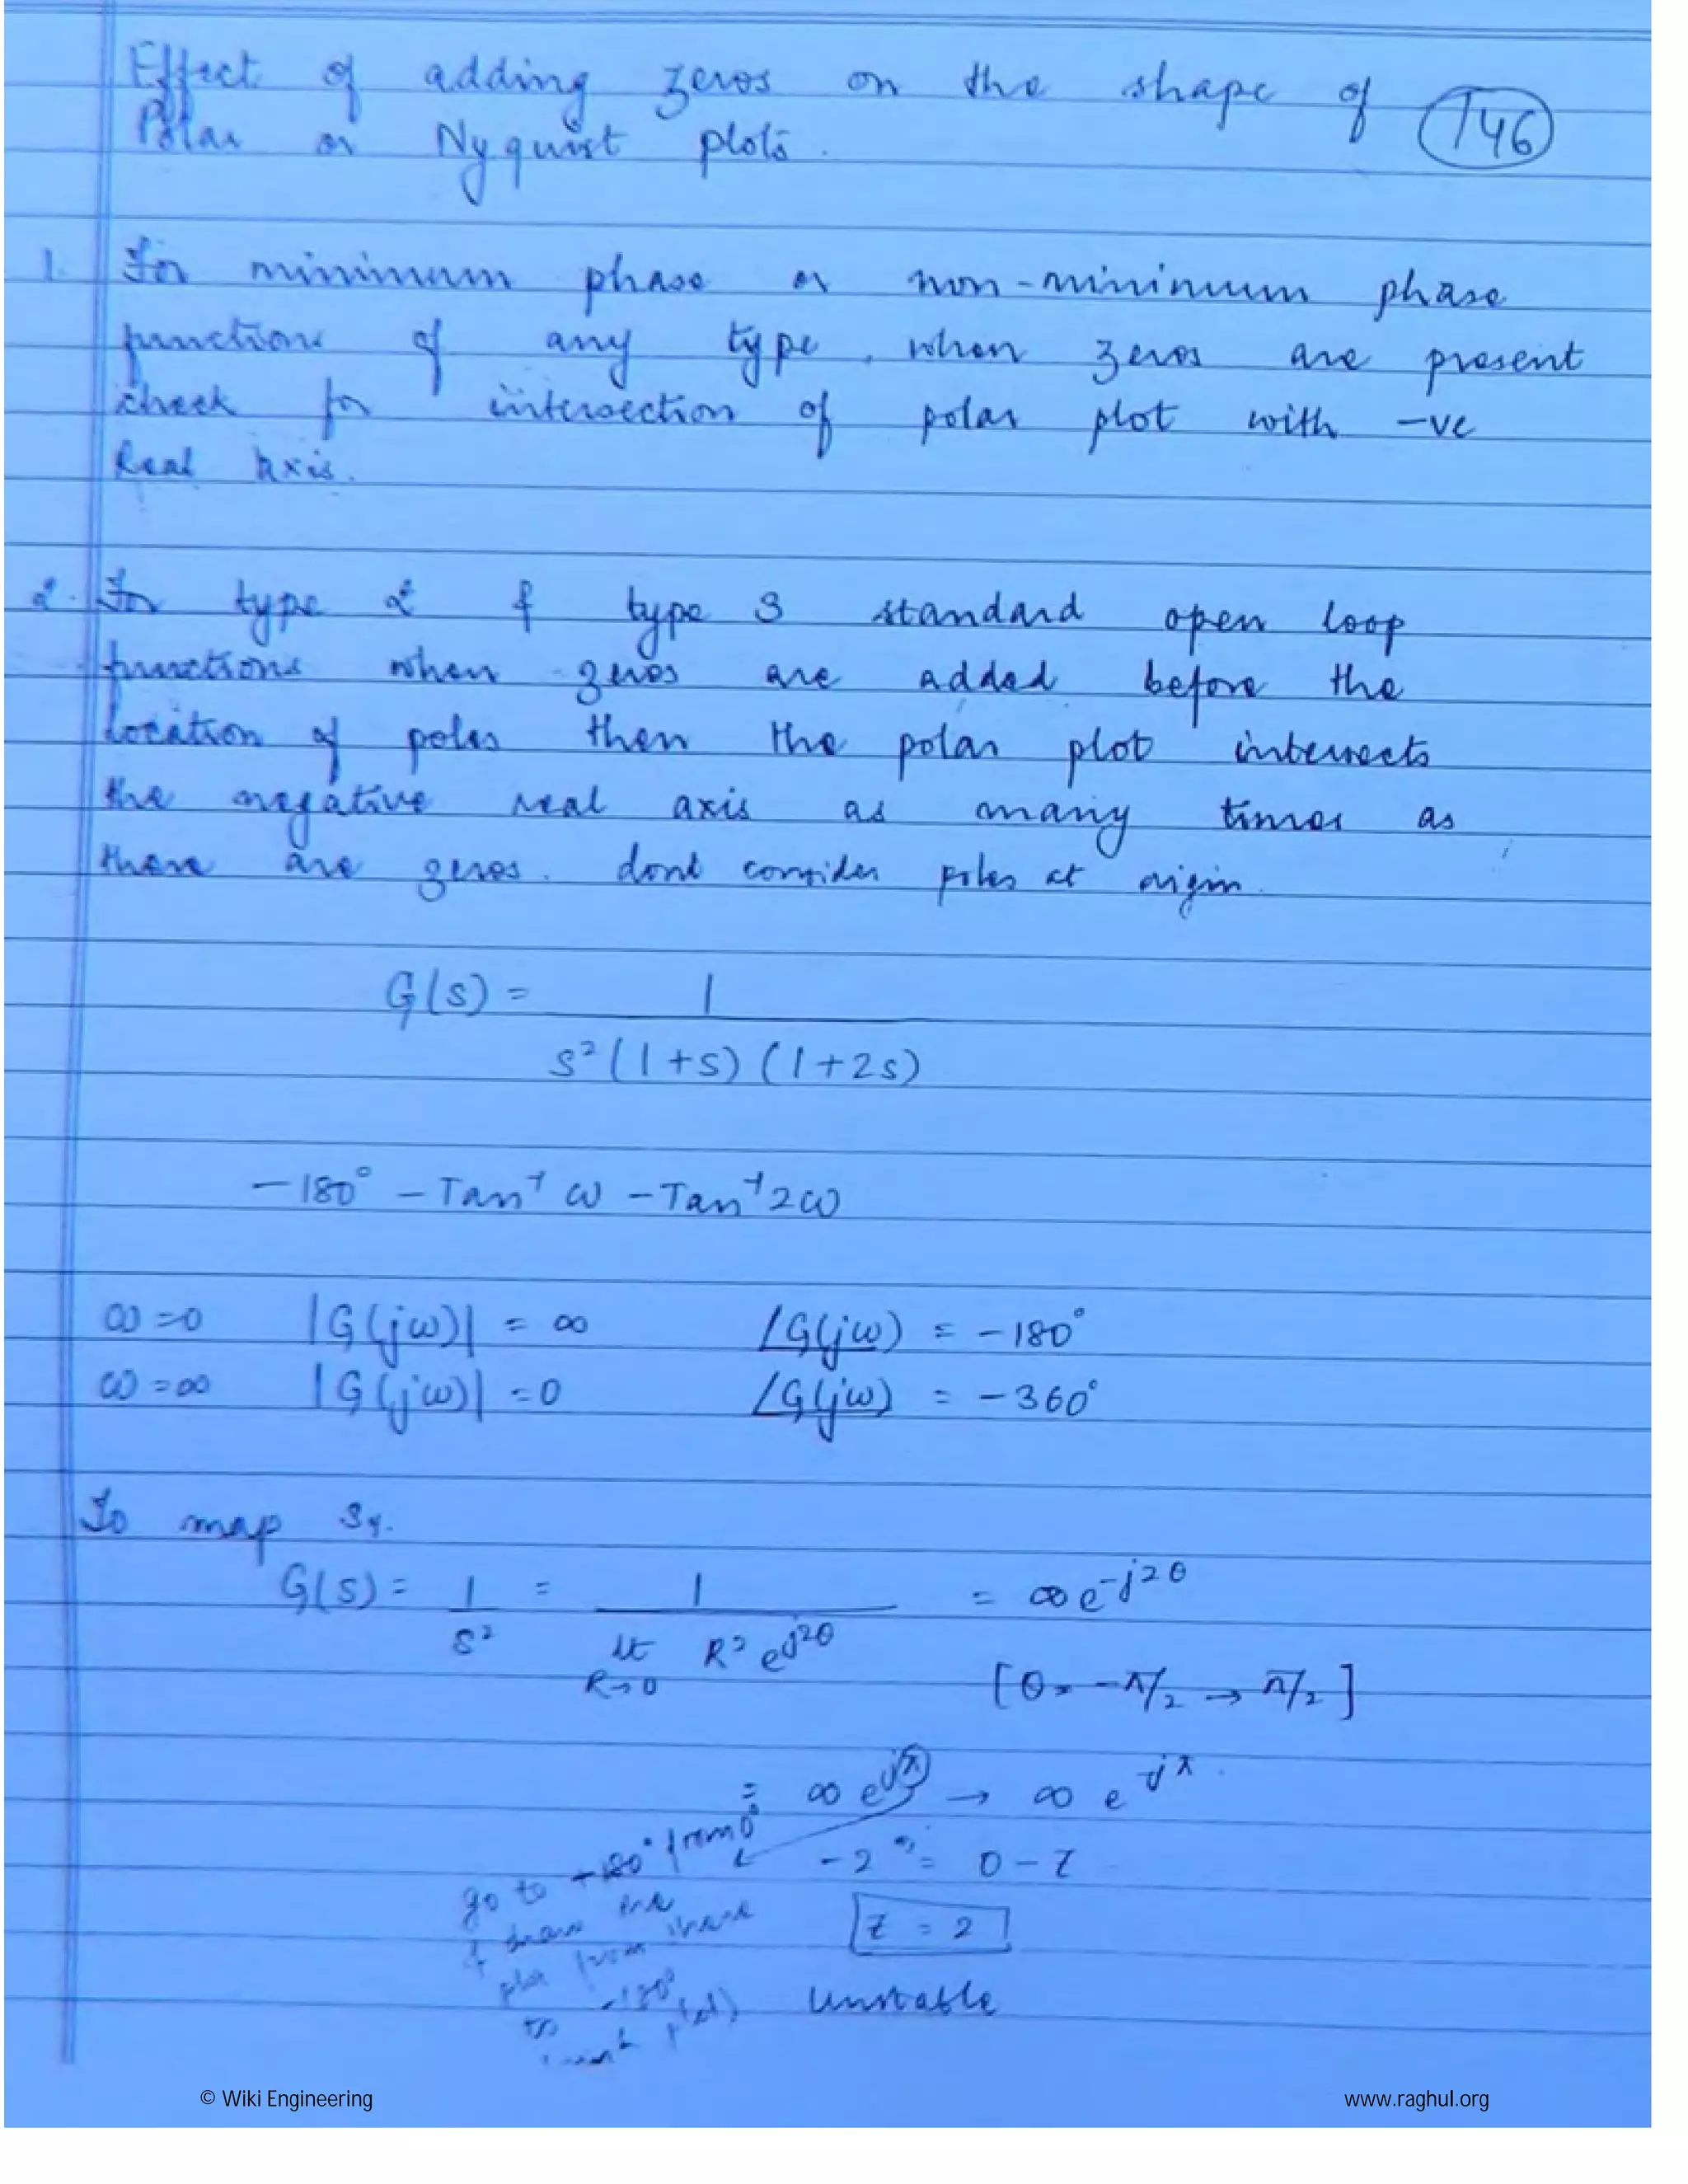 Effect of adding zeros on the shape of
Polar or Nyquist plots.
146
1. For minimum phase or non-minimum phase
functions of any type, when zeros are present
check for intersection of polar plot with -ve
Real axis.
2. For type 2 & type 3 standard open loop
functions when zeros are added before the
location of poles then the polar plot intersects
the negative real axis as many times as
there are zeros. dont consider poles at origin.
G(s) = 1 / s²(1+s)(1+2s)
-180° - Tan⁻¹ ω - Tan⁻¹ 2ω
ω=0 |G(jω)| = ∞ ∠G(jω) = -180°
ω=∞ |G(jω)| = 0 ∠G(jω) = -360°
To map
G(s) = 1/s² = 1 / lt R→0 R² e^j2θ = ∞ e^-j2θ
[θ = -π/2 → π/2]
= ∞ e^jπ → ∞ e^-jπ
go to +180° from 0° -2 = 0 - Z
& draw
from Z = 2
-180°
to Unstable
© Wiki Engineering www.raghul.org